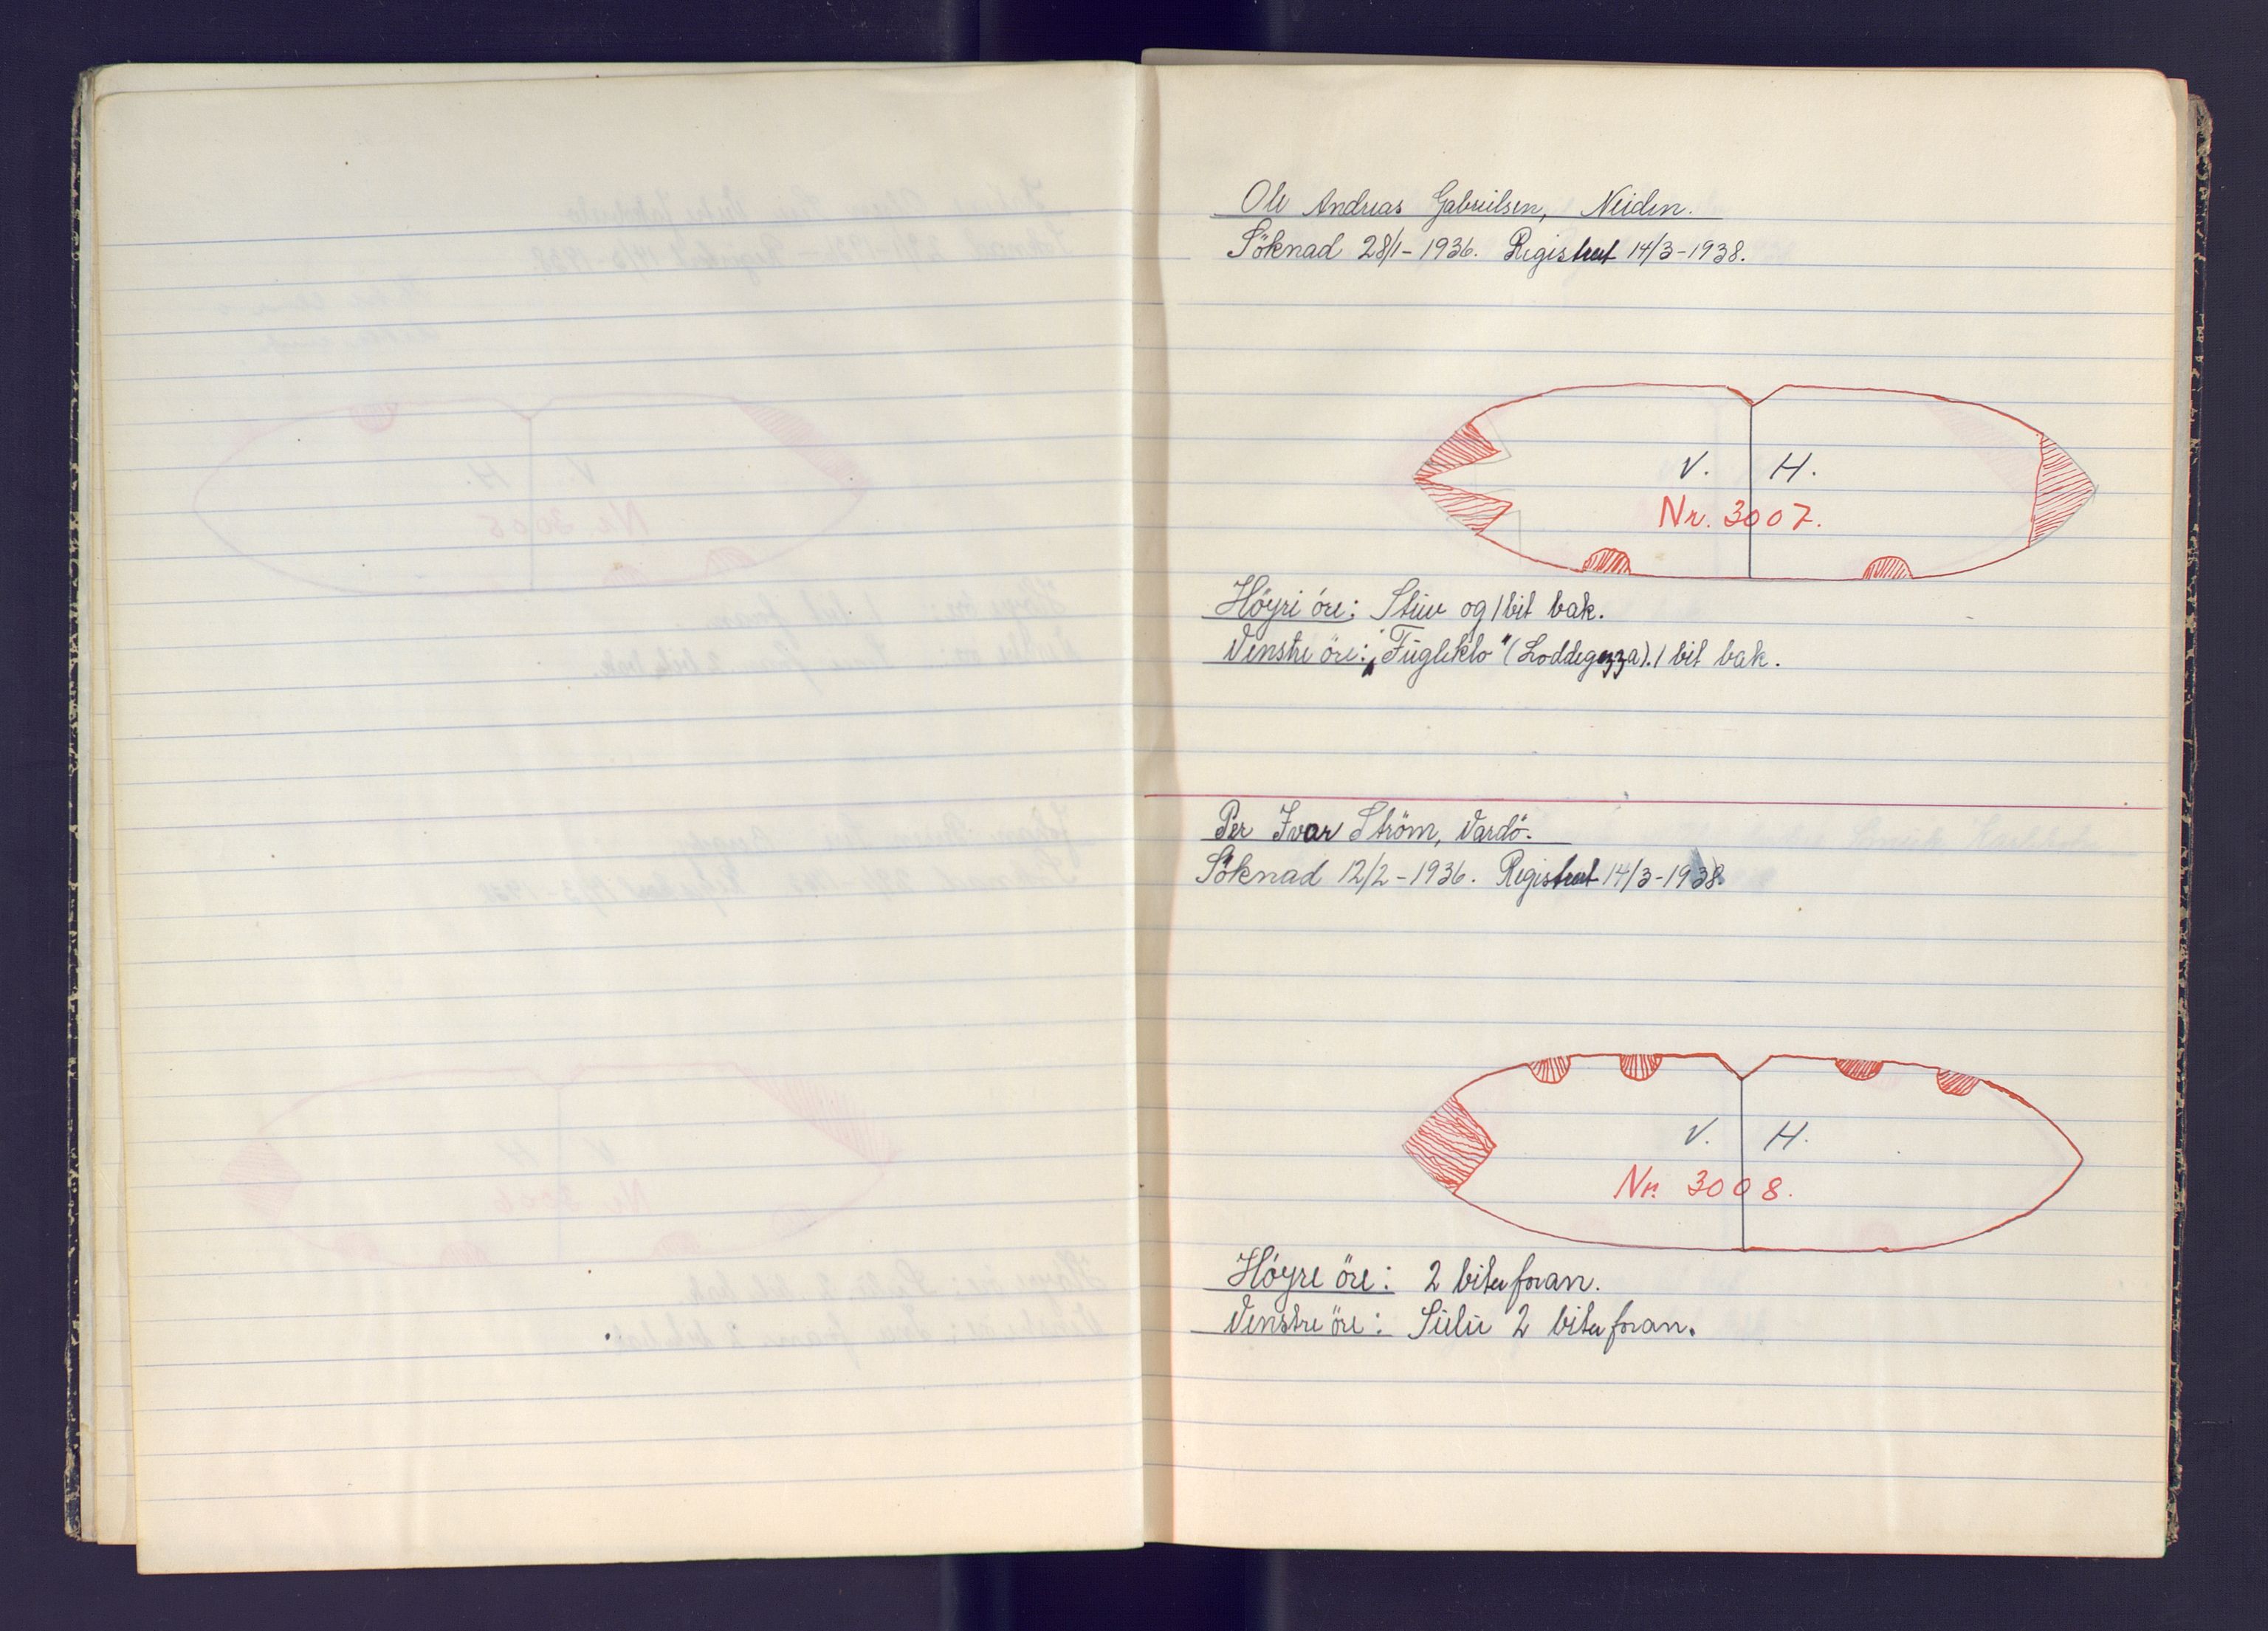 Ole Andreas Gabrielsen, Neiden.
Söknad 28/1-1936. Registrert 14/3-1938.
V. H.
Nr. 3007.
Höyre öre: Stuv og 1 bit bak.
Venstre öre: „Fugleklo" (Loddegazza). 1 bit bak.
Per Ivar Ström, Vardö.
Söknad 12/2-1936. Registrert 14/3-1938.
V. H.
Nr. 3008.
Höyre öre: 2 biter foran.
Venstre öre: Sulu 2 biter foran.